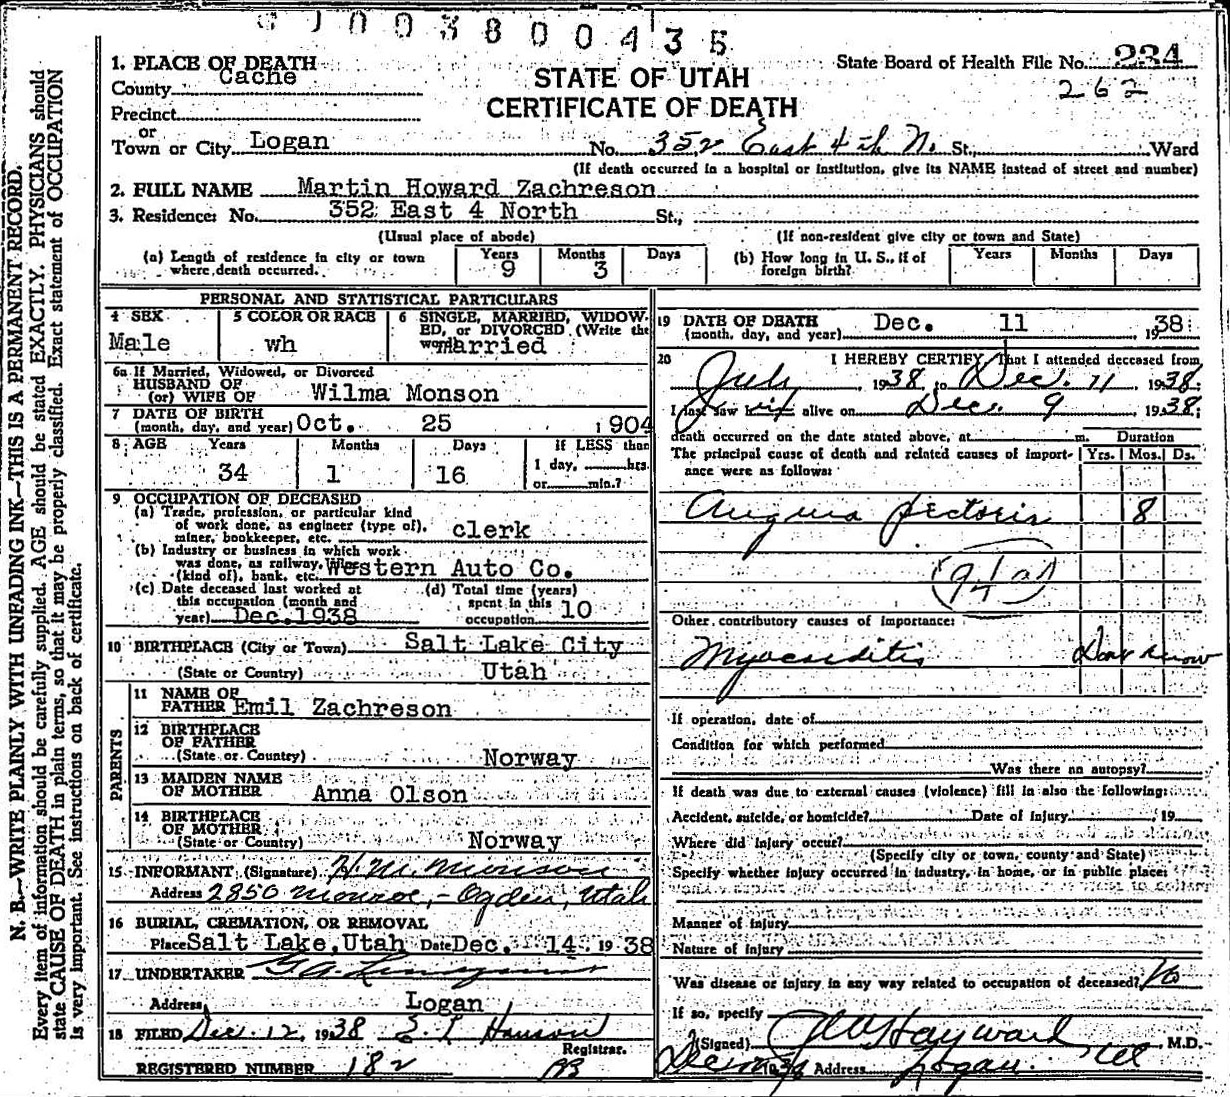 003800435
1. PLACE OF DEATH
County Cache
STATE OF UTAH
CERTIFICATE OF DEATH
State Board of Health File No. 234
262
Precinct
or
Town or City Logan No. 352 East 4th N. St., Ward
(If death occurred in a hospital or institution, give its NAME instead of street and number)
2. FULL NAME Martin Howard Zachreson
3. Residence: No. 352 East 4 North St.,
(Usual place of abode) (If non-resident give city or town and State)
(a) Length of residence in city or town where death occurred. Years 9 Months 3 Days
(b) How long in U. S., if of foreign birth? Years Months Days
PERSONAL AND STATISTICAL PARTICULARS
4 SEX Male
5 COLOR OR RACE wh
6 SINGLE, MARRIED, WIDOWED, or DIVORCED (Write the word) Married
6a If Married, Widowed, or Divorced
HUSBAND OF
(or) WIFE OF Wilma Monson
7 DATE OF BIRTH
(month, day, and year) Oct. 25 1904
8 AGE Years 34 Months 1 Days 16 If LESS than
1 day, hrs.
or min.?
9 OCCUPATION OF DECEASED
(a) Trade, profession, or particular kind
of work done, as engineer (type of),
miner, bookkeeper, etc. clerk
(b) Industry or business in which work
was done, as railway,
(kind of), bank, etc. Western Auto Co.
(c) Date deceased last worked at
this occupation (month and
year) Dec. 1938
(d) Total time (years)
spent in this
occupation 10
10 BIRTHPLACE (City or Town) Salt Lake City
(State or Country) Utah
PARENTS
11 NAME OF
FATHER Emil Zachreson
12 BIRTHPLACE
OF FATHER
(State or Country) Norway
13 MAIDEN NAME
OF MOTHER Anna Olson
14 BIRTHPLACE
OF MOTHER
(State or Country) Norway
15 INFORMANT (Signature) H. M. Monson
Address 2850 Monroe, - Ogden, Utah
16 BURIAL, CREMATION, OR REMOVAL
Place Salt Lake, Utah Date Dec. 14 1938
17 UNDERTAKER
Address Logan
18 FILED Dec. 12, 1938 Hanson
Registrar.
REGISTERED NUMBER 182
19 DATE OF DEATH
(month, day, and year) Dec. 11 1938
20 I HEREBY CERTIFY, That I attended deceased from
July, 1938, to Dec. 11, 1938;
I last saw alive on Dec. 9, 1938;
death occurred on the date stated above, at m. Duration
The principal cause of death and related causes of importance were as follows: Yrs. Mos. Ds.
Angina pectoris 8
94a
Other contributory causes of importance:
Myocarditis Dont know
If operation, date of
Condition for which performed
Was there an autopsy?
If death was due to external causes (violence) fill in also the following:
Accident, suicide, or homicide? Date of injury 19
Where did injury occur?
(Specify city or town, county and State)
Specify whether injury occurred in industry, in home, or in public place:
Manner of injury
Nature of injury
Was disease or injury in any way related to occupation of deceased? No
If so, specify
(Signed) Hayward M.D.
Address Logan. Ut
N. B.—WRITE PLAINLY WITH UNFADING INK—THIS IS A PERMANENT RECORD.
Every item of information should be carefully supplied. AGE should be stated EXACTLY. PHYSICIANS should
state CAUSE OF DEATH in plain terms, so that it may be properly classified. Exact statement of OCCUPATION
is very important. See instructions on back of certificate.